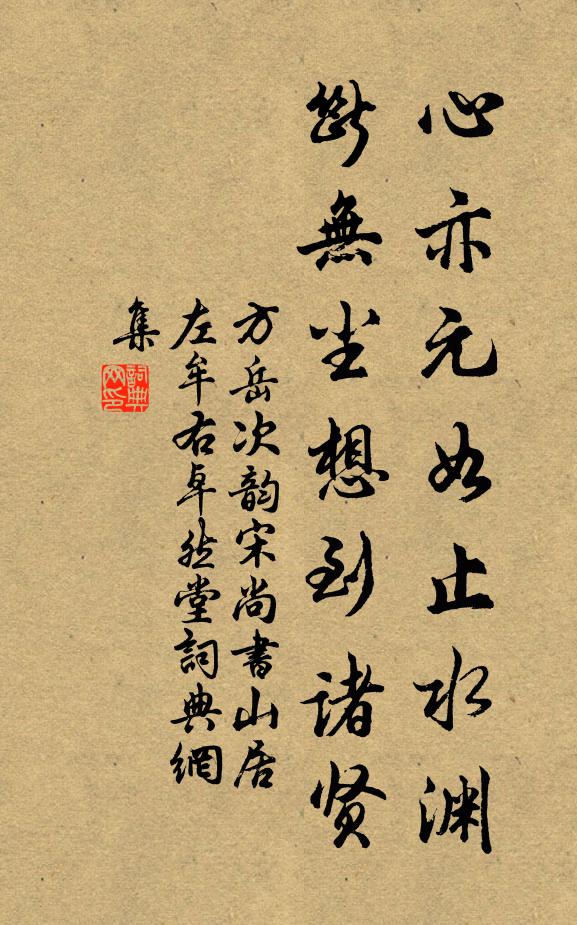 心亦元如止水渊
断無尘想到诸贤
方岳次韵宋尚書山居
左牟右卓然堂詞典網
集
詞典
网印